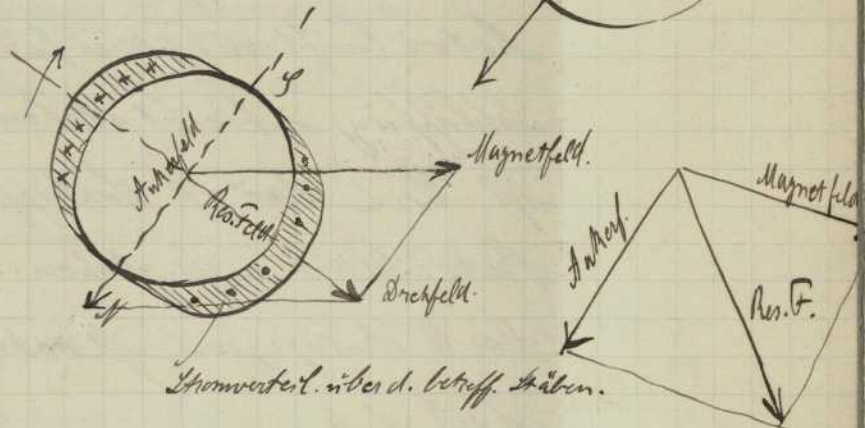 φ
Ankerfeld
Magnetfeld.
Res. Feld
Drehfeld.
Stromverteil. über d. betreff. Stäben.
Magnetfeld
Ankerf.
Res. F.